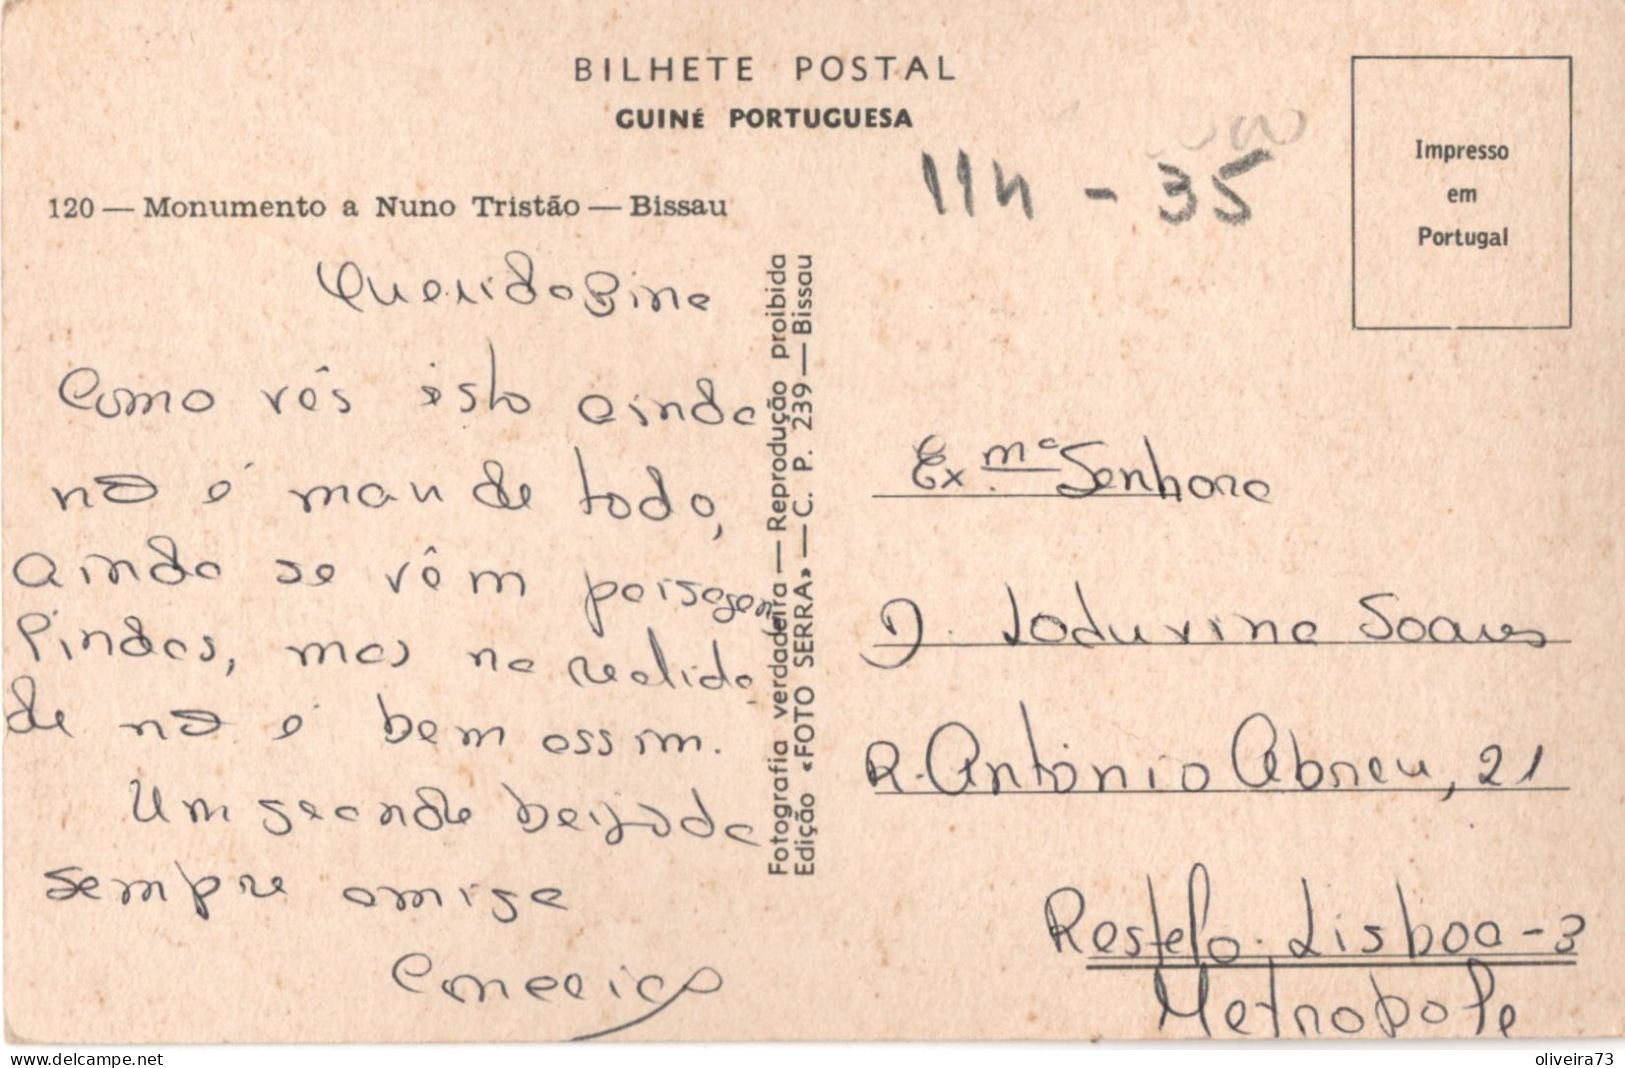 BILHETE POSTAL
GUINÉ PORTUGUESA
120 — Monumento a Nuno Tristão — Bissau
114 - 35
Impresso
em
Portugal
Querida Bina
Como vês isto ainda
não é mau de todo,
ainda se vêm paisagens
lindas, mas na realida
de não é bem assim.
Um grande beijo da
sempre amiga
Fotografia verdadeira — Reprodução proibida
Edição «FOTO SERRA» — C. P. 239 — Bissau
Ex.ma Senhora
D. Joduvina Soares
R. António Abreu, 21
Restelo. Lisboa - 3
Metropole
delcampe.net
oliveira73